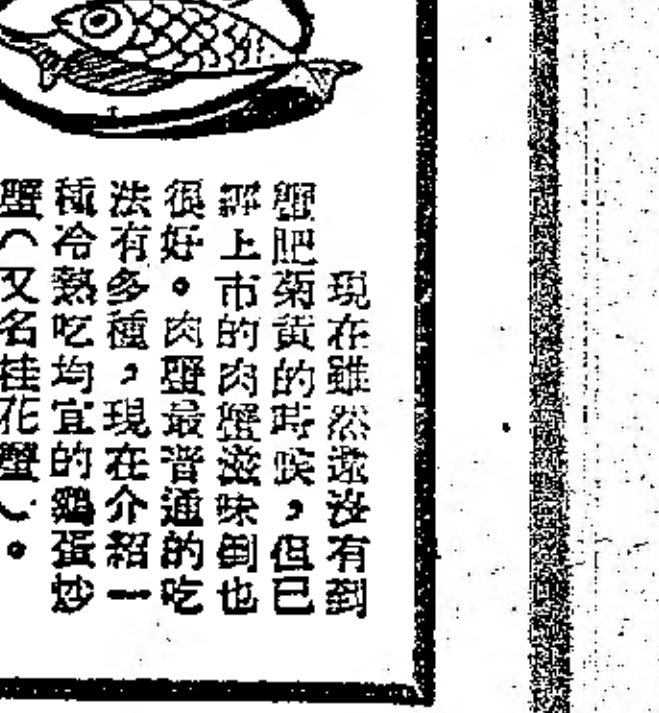 現在雖然還沒有到
蟹肥菊黃的時候，但已
經上市的肉蟹滋味倒也
很好。肉蟹最普通的吃
法有多種，現在介紹一
種冷熱吃均宜的鷄蛋炒
蟹（又名桂花蟹）。